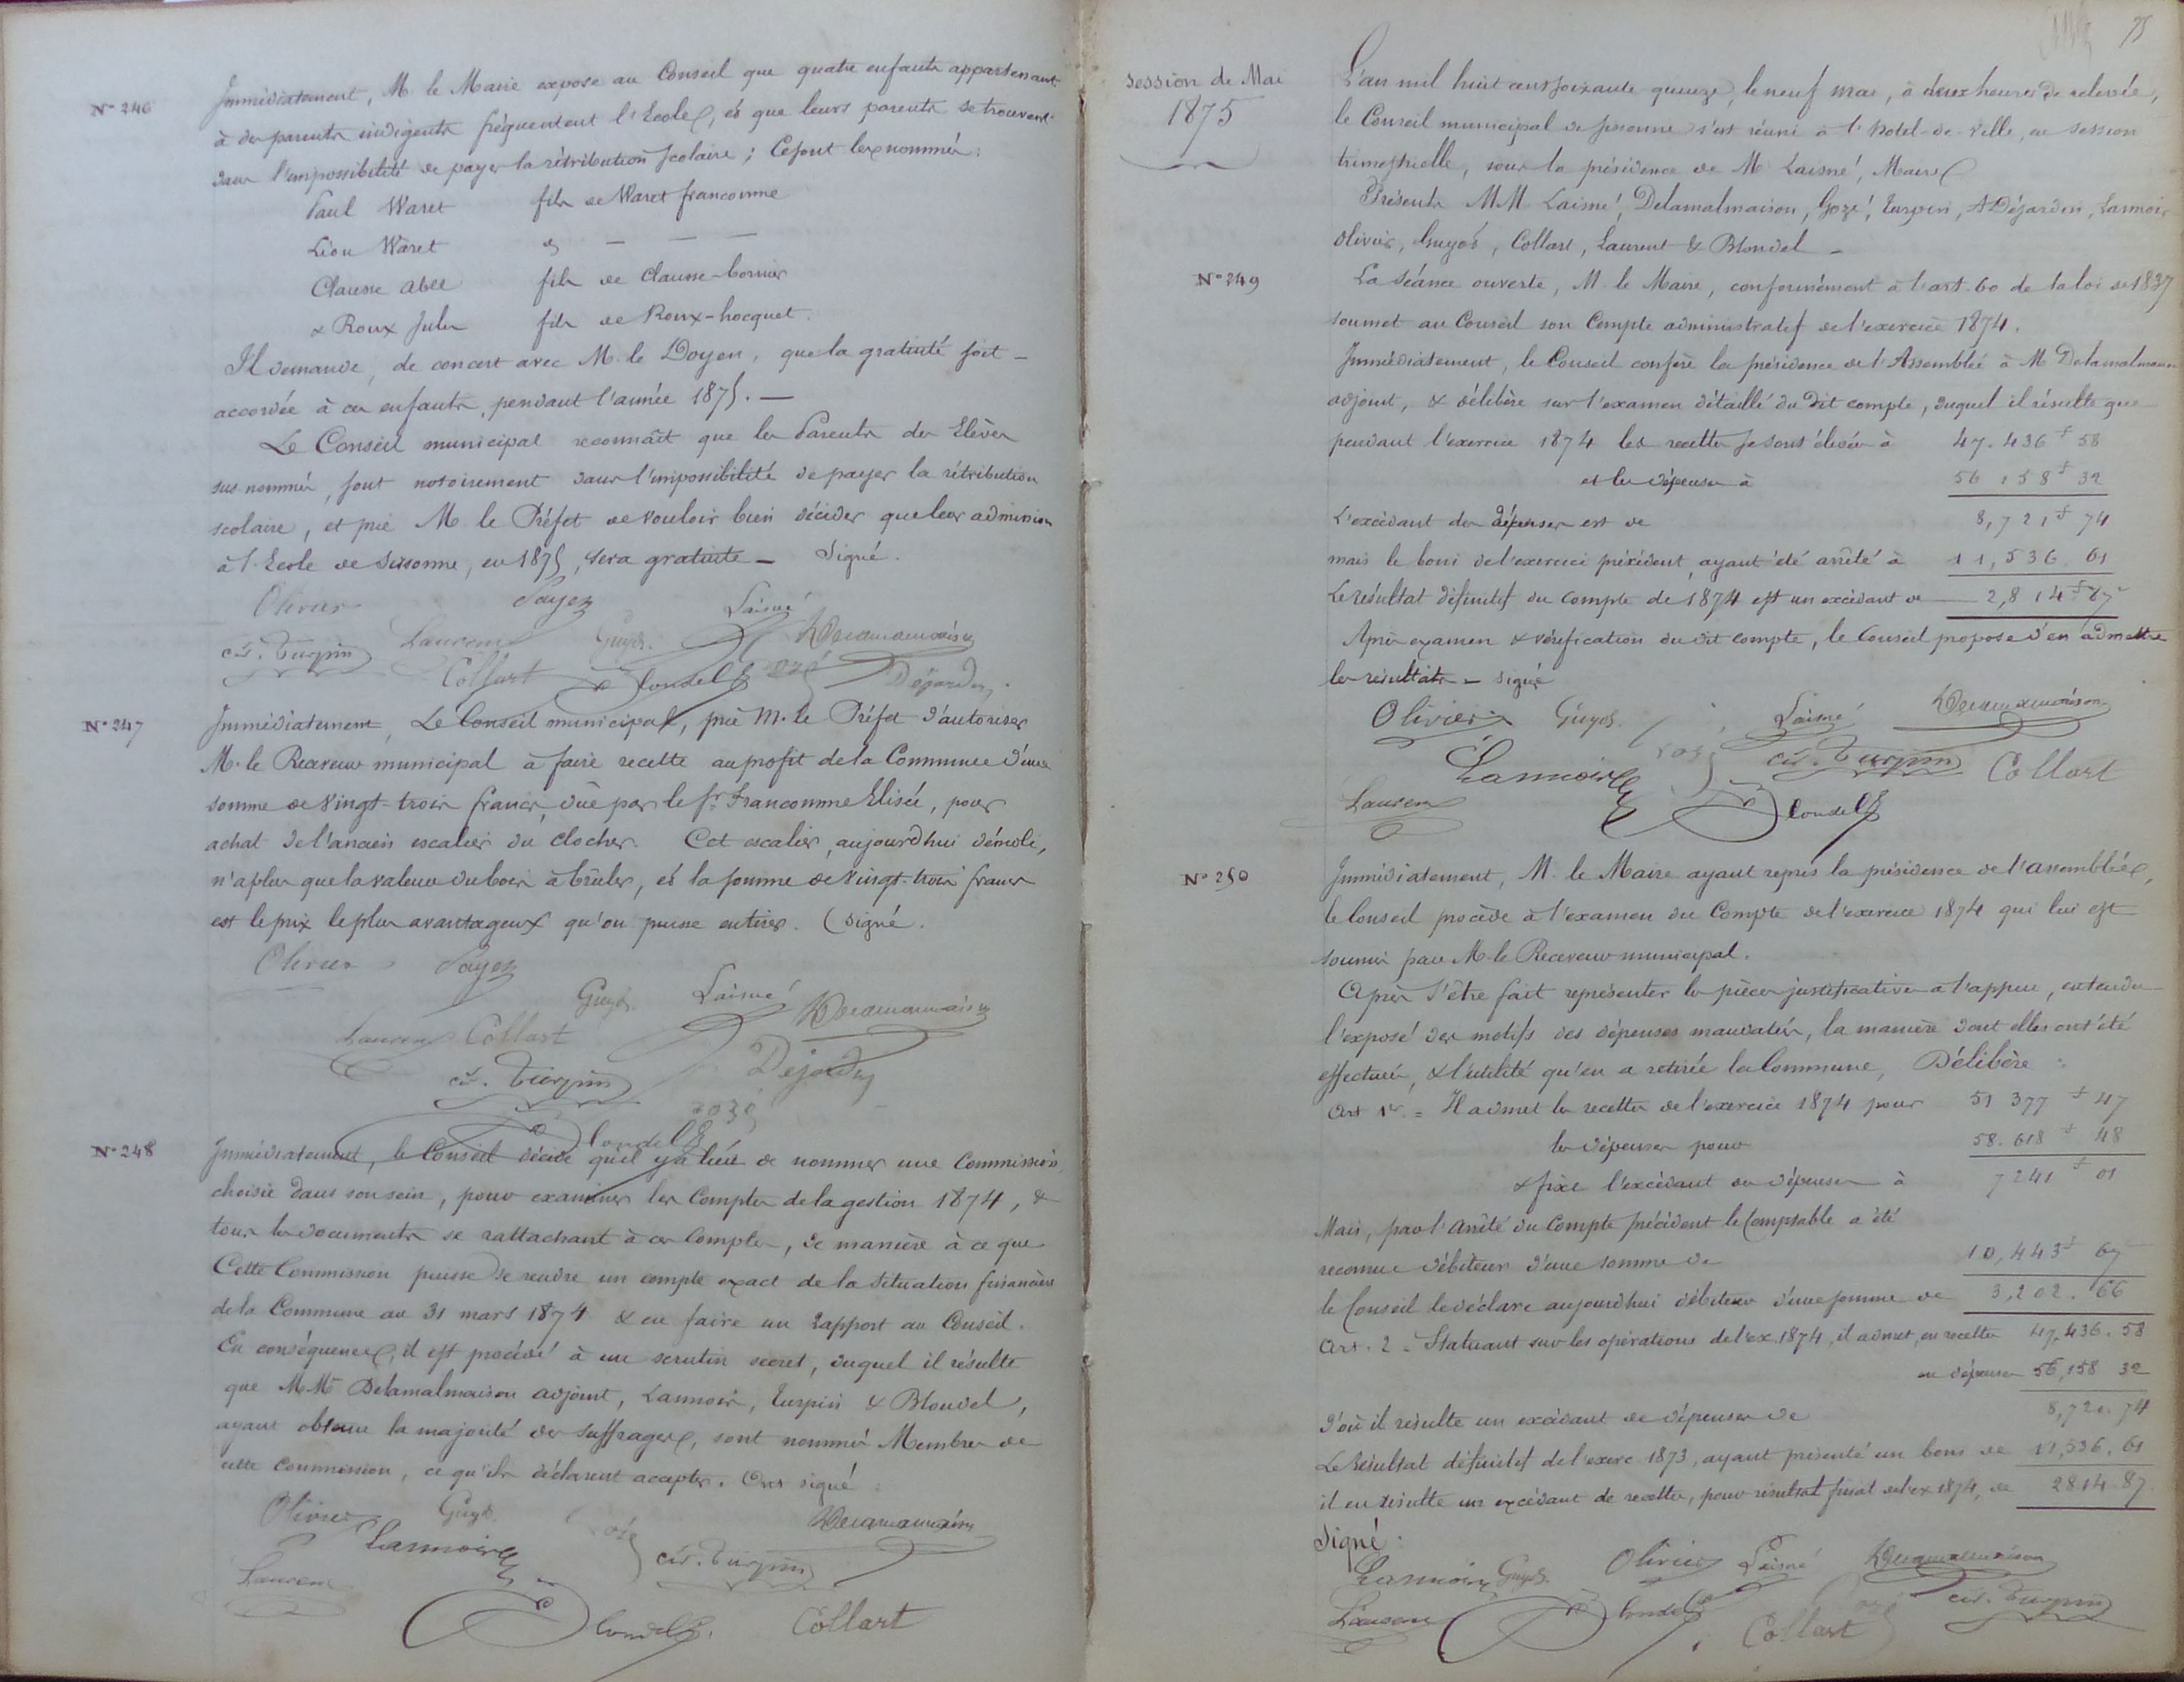 N° 246
Immédiatement, M. le Maire expose au Conseil que quatre enfants appartenant
à des parents indigents fréquentent l'Ecole, et que leurs parents se trouvent
dans l'impossibilité de payer la rétribution scolaire ; Ce sont les nommés :
Paul Waret fils de Waret francomme
Léon Waret d° — — —
Clausse Abel fils de Clausse-bornier
& Roux Jules fils de Roux-hocquet.
Il demande, de concert avec M. le Doyen, que la gratuité soit —
accordée à ces enfants, pendant l'année 1875. —
Le Conseil municipal reconnaît que les Parents des Elèves
sus nommés, sont notoirement dans l'impossibilité de payer la rétribution
scolaire, et prie M. le Préfet de vouloir bien décider que leur admission
à l'Ecole de Sissonne, en 1875, sera gratuite — Signé.
Olivier Payen Laisné
cis. Turpin Laurent Guyot. Delamalmaison
Collart Blondel Gozé Déjardin.
N° 247
Immédiatement, Le Conseil municipal, prie M. le Préfet d'autoriser
M. le Receveur municipal à faire recette au profit de la Commune d'une
somme de vingt-trois francs, dûe par le Sr. Francomme Elisée, pour
achat de l'ancien escalier du clocher. Cet escalier, aujourd'hui démoli,
n'a plus que la valeur du bois à brûler, et la somme de vingt-trois francs
est le prix le plus avantageux qu'on puisse en tirer. (Signé.
Olivier Payen
Guyot. Laisné Delamalmaison
Laurent Collart
cis. Turpin Déjardin
Gozé
Blondel
N° 248
Immédiatement, le Conseil décide qu'il y a lieu de nommer une Commission,
choisie dans son sein, pour examiner les Comptes de la gestion 1874, &
tous les documents se rattachant à ces Comptes, de manière à ce que
Cette Commission puisse se rendre un compte exact de la situation financière
de la Commune au 31 mars 1874 & en faire un Rapport au Conseil.
En conséquence, il est procédé à un scrutin secret, duquel il résulte
que MM Delamalmaison adjoint, Lannois, Turpin & Blondel,
ayant obtenu la majorité des suffrages, sont nommés Membres de
cette Commission, ce qu'ils déclarent accepter. Ont signé :
Olivier Guyot. Gozé Delamalmaison
Lannois cis. Turpin
Laurent
Blondel. Collart
75
Session de Mai
1875
L'an mil huit cent soixante quinze, le neuf mai, à deux heures de relevée,
le Conseil municipal de Sissonne s'est réuni à l'hotel-de-ville, en session
trimestrielle, sous la présidence de M. Laisné, Maire
Présents MM. Laisné, Delamalmaison, Gozé, Turpin, A Déjardin, Lannois
Olivier, Guyot, Collart, Laurent & Blondel —
N° 249
La séance ouverte, M. le Maire, conformément à l'art. 60 de la loi de 1837
soumet au Conseil son Compte administratif de l'exercice 1874.
Immédiatement, le Conseil confère la présidence de l'Assemblée à M Delamalmaison
adjoint, & délibère sur l'examen détaillé du dit compte, duquel il résulte que
pendant l'exercice 1874 les recettes se sont élevées à 47.436 f 58
et les dépenses à 56 158 f 32
L'excédant des dépenses est de 8,721 f 74
mais le boni de l'exercice précédent, ayant été arrêté à 11,536. 61
Le résultat définitif du compte de 1874 est un excédant de 2,814 f 87
Après examen & vérification du dit compte, le Conseil propose d'en admettre
les résultats — signé
Olivier Guyot. Laisné Delamalmaison
Lannois Gozé cis. Turpin Collart
Laurent Blondel
N° 250
Immédiatement, M. le Maire ayant repris la présidence de l'assemblée,
le Conseil procède à l'examen du Compte de l'exercice 1874 qui lui est
soumis par M. le Receveur municipal.
Après s'être fait représenter les pièces justificatives à l'appui, entendu
l'exposé des motifs des dépenses mandatées, la manière dont elles ont été
effectuées, & l'utilité qu'en a retirée la Commune, Délibère :
Art 1er. = Il admet les recettes de l'exercice 1874 pour 51 377 f 47
les dépenses pour 58.618 f 48
& fixe l'excédant des dépenses à 7241 f 01
Mais, par l'arrêté du Compte précédent le Comptable a été
reconnu débiteur d'une somme de 10,443 f 67
le Conseil le déclare aujourd'hui débiteur d'une somme de 3,202. 66
Art. 2 = Statuant sur les opérations de l'ex. 1874, il admet, en recettes 47.436.58
en dépenses 56,158 32
d'où il résulte un excédant de dépenses de 8,721.74
Le Résultat définitif de l'exerc 1873, ayant présenté un boni de 11,536.61
il en résulte un excédant de recettes, pour résultat final de l'ex 1874, de 2814.87
Signé :
Lannois Guyot. Olivier Laisné Delamalmaison
Laurent Blondel Collart Gozé cis. Turpin